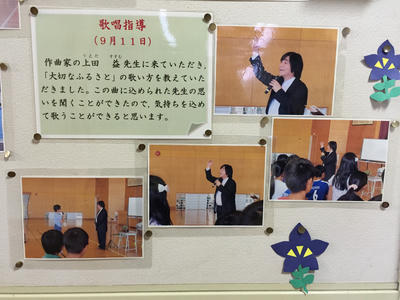 歌唱指導
(9月11日)
作曲家の上田 益先生に来ていただき、
「大切なふるさと」の歌い方を教えていただ
きました。この曲に込められた先生の思
いを聞くことができたので、気持ちを込め
て歌うことができると思います。